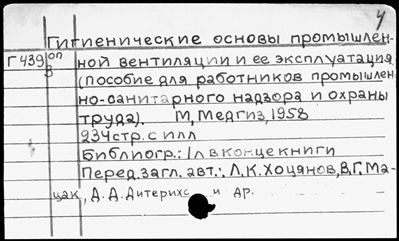 4
Гигиенические основы промышлен-
Г439 оп В ной вентиляции и ее эксплуатация
(пособие для работников промышлен
но-санитарного надзора и охраны
труда). М, Медгиз, 1958
234 стр. с илл
Библиогр.: 1 л в конце книги
Перед. загл. авт.: Л.К. Хоцянов, В.Г. Ма-
цак, Д.Д. Дитерихс и др.